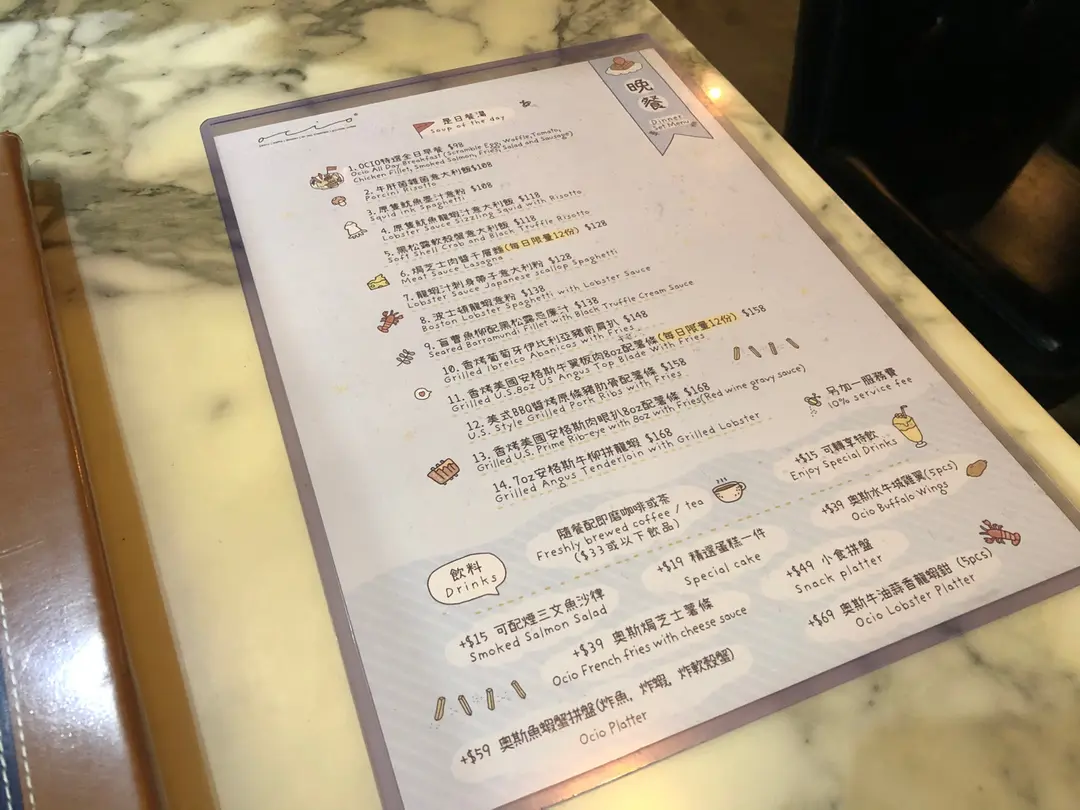 ocio
晚餐
Dinner
Set Menu
是日餐湯
Soup of the day
1. OCIO特選全日早餐 $98
Ocio All Day Breakfast (Scramble Egg, Waffle, Tomato,
Chicken Fillet, Smoked Salmon, Fries, Salad and Sausage)
2. 牛肝菌雜菌意大利飯 $108
Porcini Risotto
3. 原隻魷魚墨汁意粉 $108
Squid ink Spaghetti
4. 原隻魷魚龍蝦汁意大利飯 $118
Lobster Sauce Sizzling Squid with Risotto
5. 黑松露軟殼蟹意大利飯 $118
Soft Shell Crab and Black Truffle Risotto
6. 焗芝士肉醬千層麵(每日限量12份) $128
Meat Sauce Lasagna
7. 龍蝦汁刺身帶子意大利粉 $128
Lobster Sauce Japanese scallop Spaghetti
8. 波士頓龍蝦意粉 $138
Boston Lobster Spaghetti with Lobster Sauce
9. 盲曹魚柳配黑松露忌廉汁 $138
Seared Barramundi Fillet with Black Truffle Cream Sauce
10. 香烤葡萄牙伊比利亞豬前肩扒 $148
Grilled Ibreico Abanicos with Fries
11. 香烤美國安格斯牛翼板肉8oz配薯條(每日限量12份) $158
Grilled U.S.8oz US Angus Top Blade With Fries
12. 美式BBQ醬烤原條豬肋骨配薯條 $158
U.S. Style Grilled Pork Ribs with Fries
13. 香烤美國安格斯肉眼扒8oz配薯條 $168
Grilled U.S. Prime Rib-eye with 8oz with Fries(Red wine gravy sauce)
14. 7oz安格斯牛柳拼龍蝦 $168
Grilled Angus Tenderloin with Grilled Lobster
另加一服務費
10% service fee
飲料
Drinks
隨餐配即磨咖啡或茶
Freshly brewed coffee / tea
($33或以下飲品)
+$15 可轉享特飲
Enjoy Special Drinks
+$39 奧斯水牛城雞翼(5pcs)
Ocio Buffalo Wings
+$19 精選蛋糕一件
Special cake
+$49 小食拼盤
Snack platter
+$15 可配煙三文魚沙律
Smoked Salmon Salad
+$39 奧斯焗芝士薯條
Ocio French fries with cheese sauce
+$69 奧斯牛油蒜香龍蝦鉗 (5pcs)
Ocio Lobster Platter
+$59 奧斯魚蝦蟹拼盤(炸魚, 炸蝦, 炸軟殼蟹)
Ocio Platter